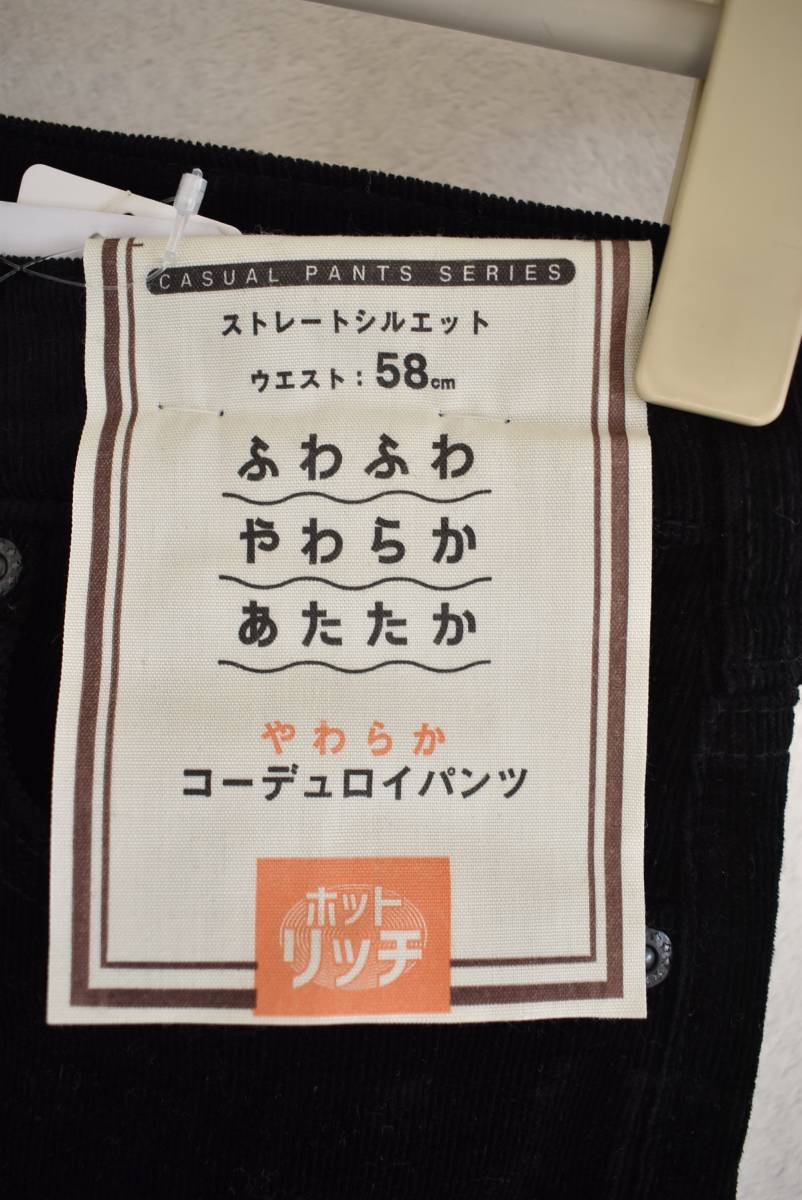 CASUAL PANTS SERIES
ストレートシルエット
ウエスト：58cm
ふわふわ
やわらか
あたたか
やわらか
コーデュロイパンツ
ホット
リッチ